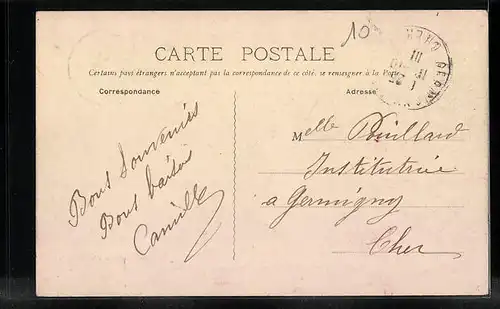 10
CARTE POSTALE
Certains pays étrangers n'acceptant pas la correspondance de ce côté, se renseigner à la Poste
Correspondance
Adresse
Bons Souvenirs
Bons baisers
Camille
Melle Pouillard
Institutrice
a Germigny
Cher
CHER